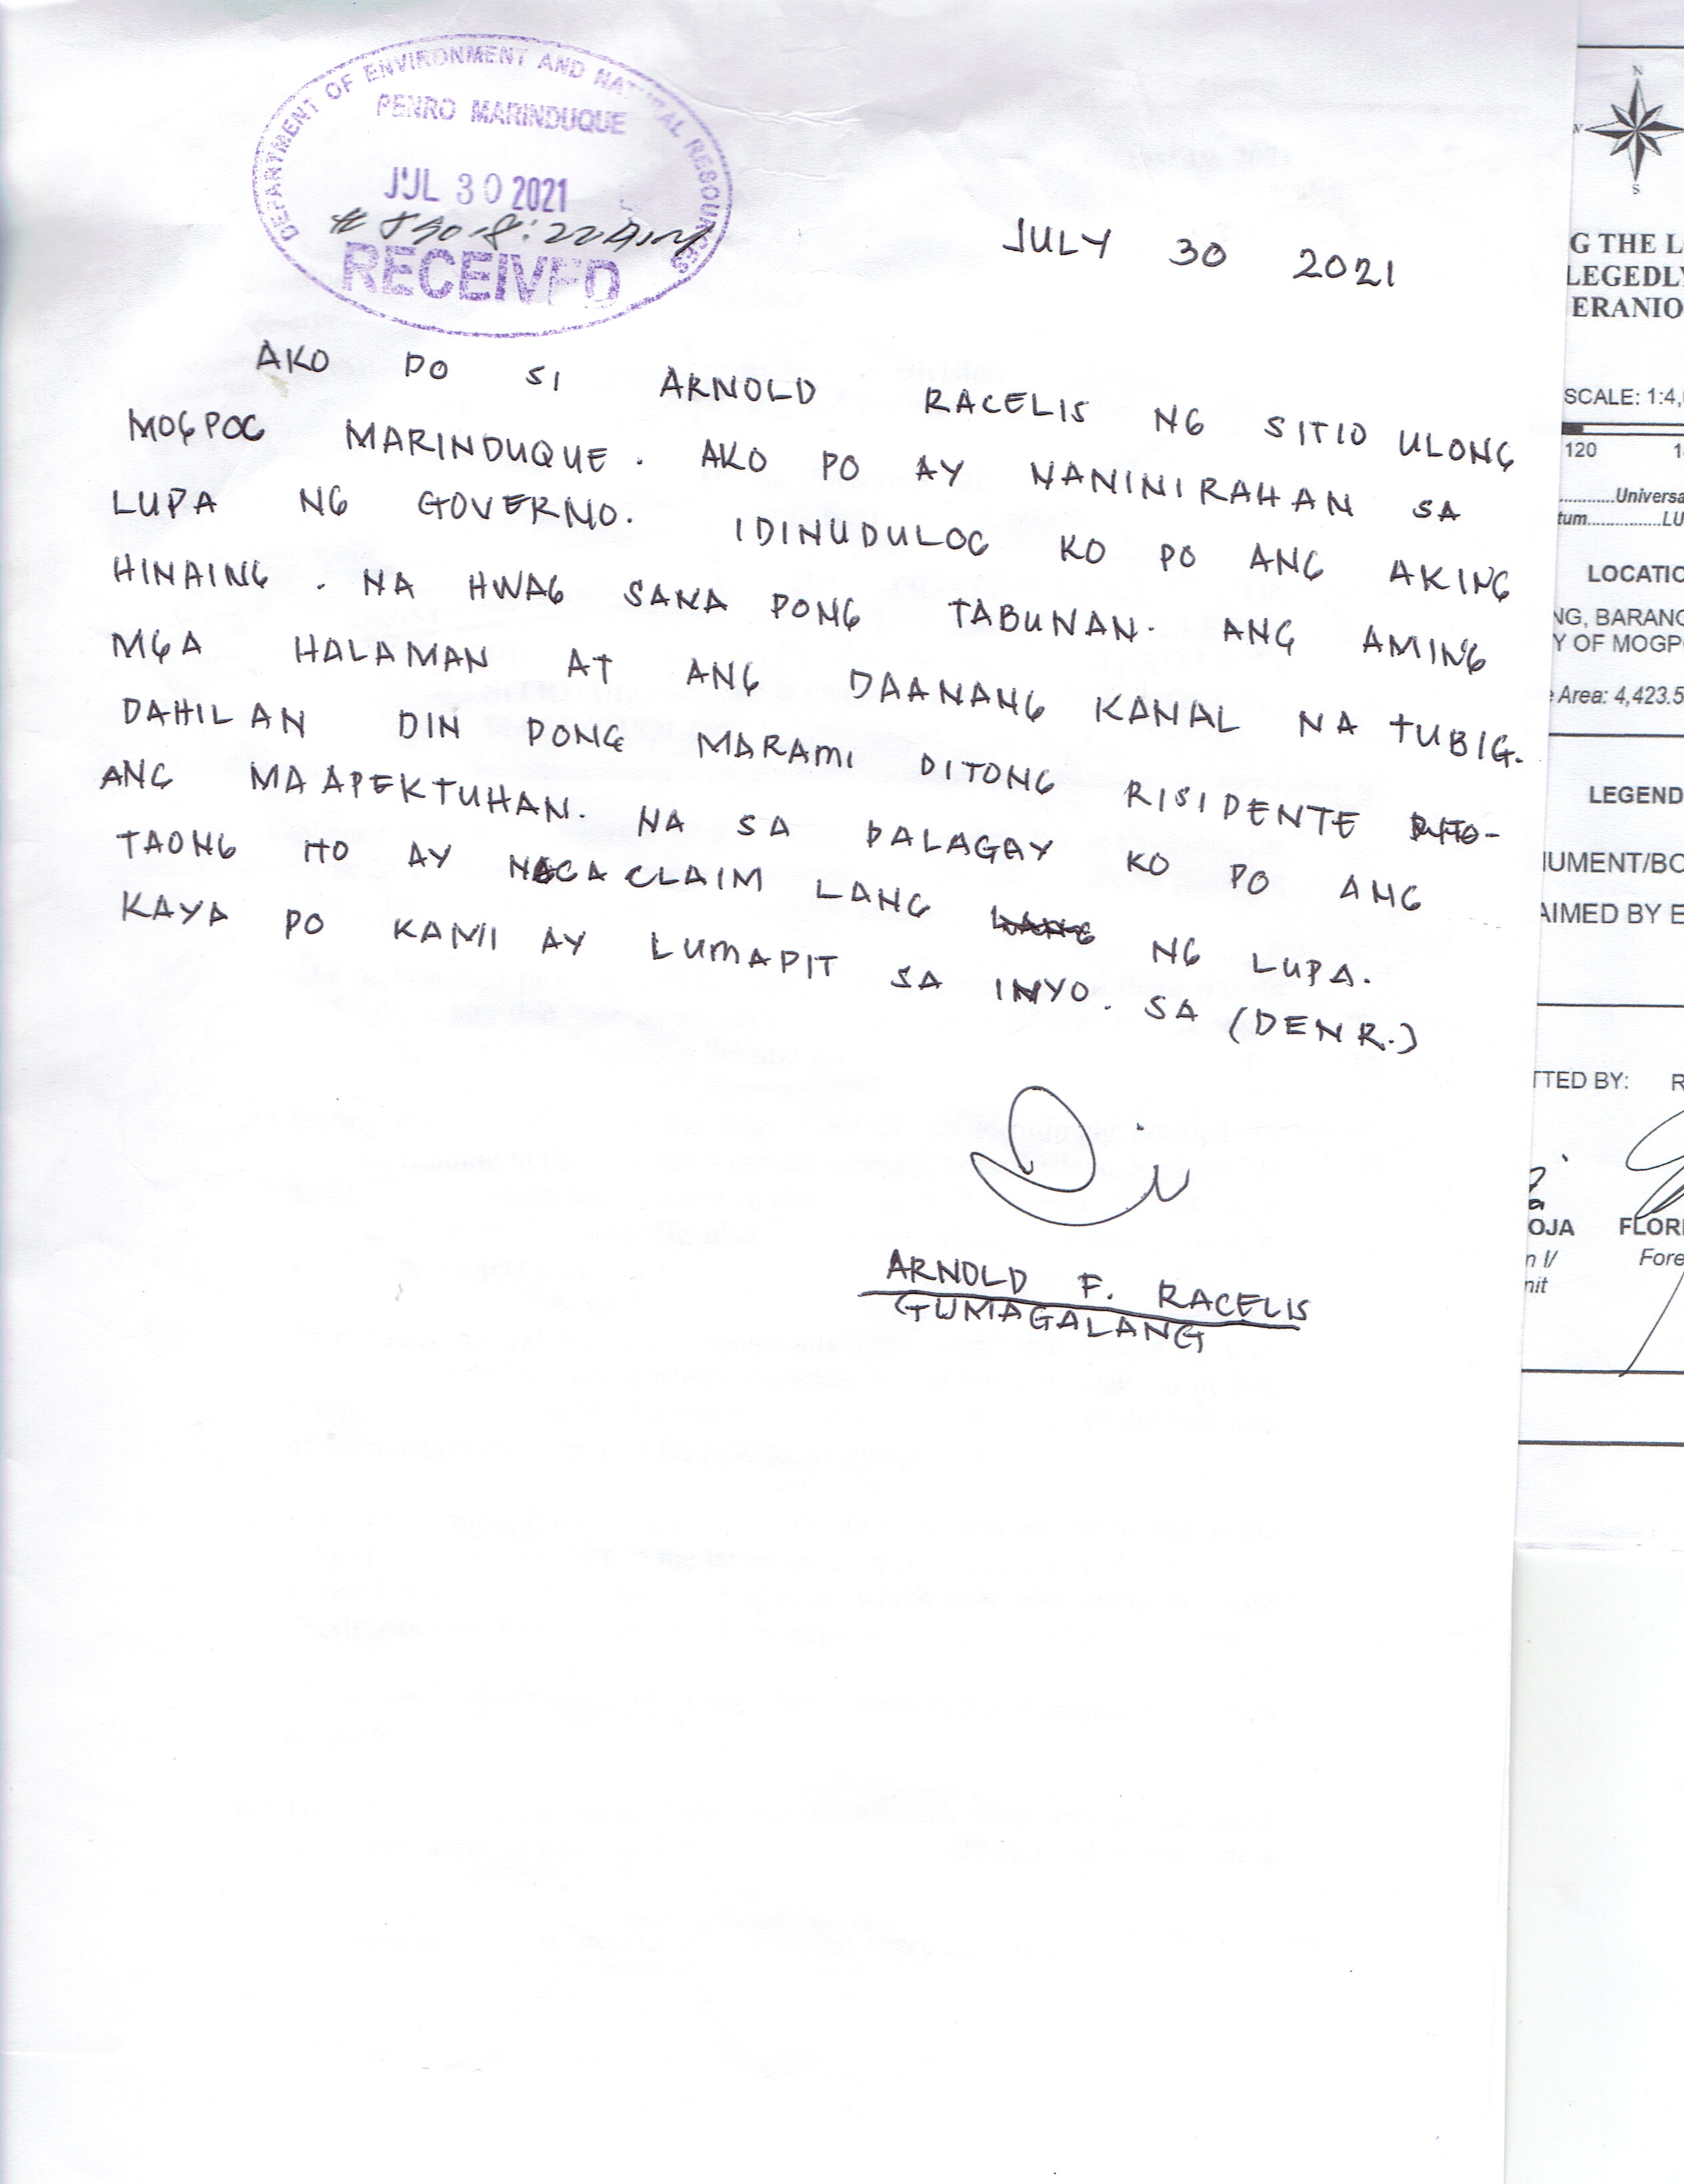 DEPARTMENT OF ENVIRONMENT AND NATURAL RESOURCES
PENRO MARINDUQUE
JUL 30 2021
RECEIVED
JULY 30 2021
AKO PO SI ARNOLD RACELIS NG SITIO ULONG
MOGPOG MARINDUQUE. AKO PO AY NANINIRAHAN SA
LUPA NG GOVERNO. IDINUDULOG KO PO ANG AKING
HINAING. NA HWAG SANA PONG TABUNAN. ANG AMING
MGA HALAMAN AT ANG DAANANG KANAL NA TUBIG.
DAHILAN DIN PONG MARAMI DITONG RISIDENTE
ANG MAAPEKTUHAN. NA SA PALAGAY KO PO ANG
TAONG ITO AY NAGACLAIM LANG NG LUPA.
KAYA PO KAMI AY LUMAPIT SA INYO. SA (DENR.)
ARNOLD F. RACELIS
GUMAGALANG
N
W
S
G THE L
LEGEDLY
ERANIO
SCALE: 1:4,
120
Universa
tum..............LU
LOCATIO
NG, BARANG
Y OF MOGP
Area: 4,423.5
LEGEND
NUMENT/BO
AIMED BY E
TTED BY: R
OJA FLOR
n I/ Fore
nit